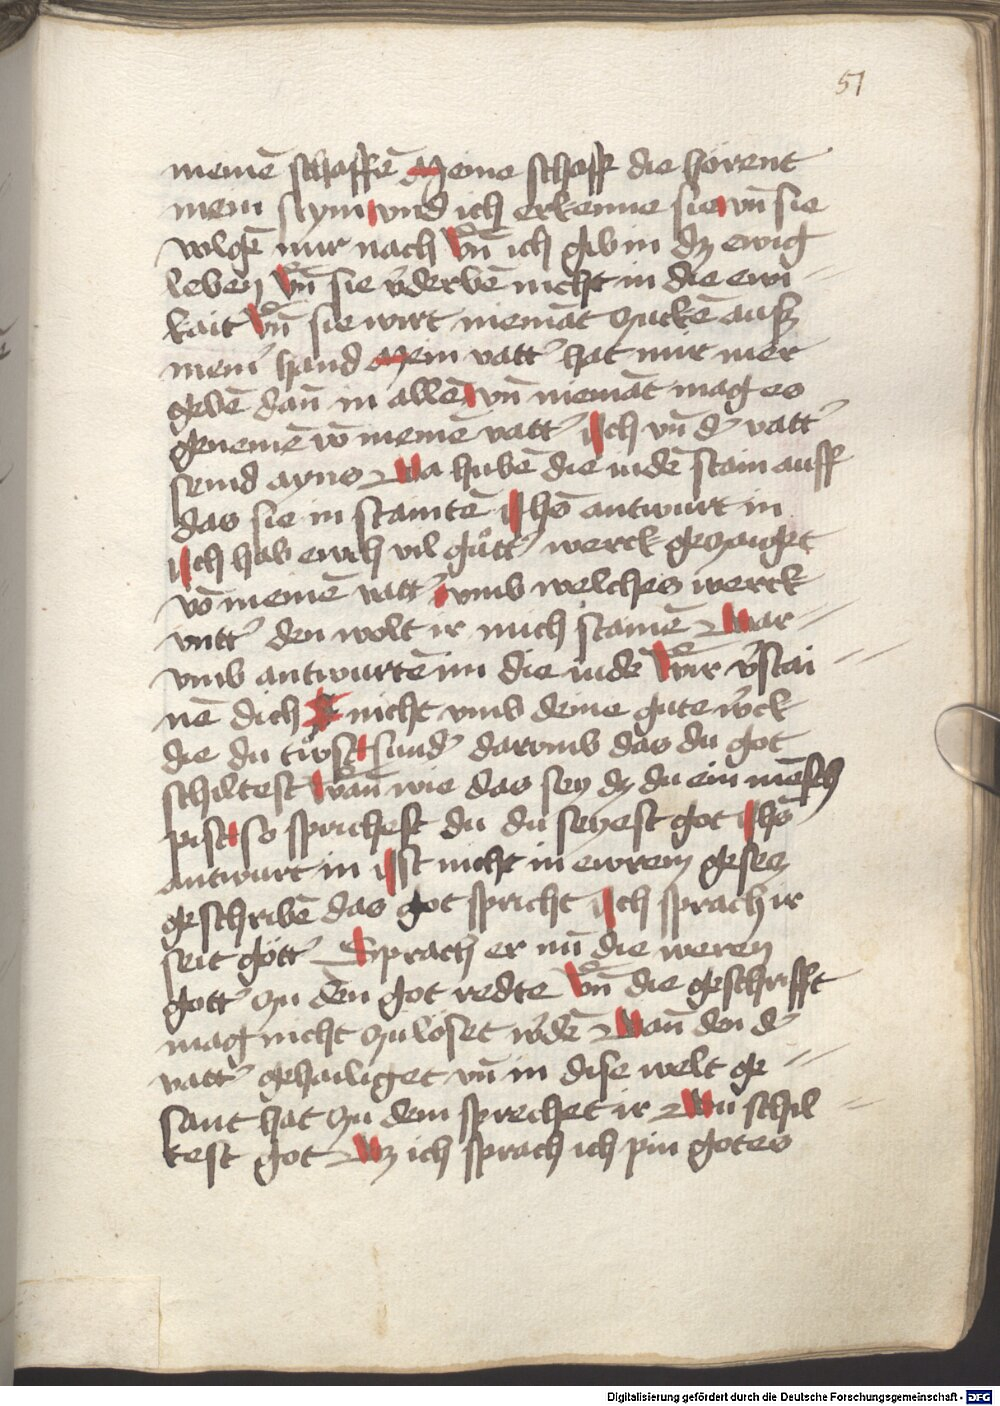 51
meinē schaffē Meine schaff die hörent
mein stym vnd ich erkenne sie vn̄ sie
volgē mir nach Vn̄ ich gib in dz ewig
leben Vn̄ sie v̓derbē nicht in die ewi-
kait Vn̄ sie wirt niemāt zucken auß
mein̓ hand Mein vatt̓ hat mir mer
gebē dan̄ in allē vn̄ niemāt mag es
genemē vō meinē vatt̓ Ich vn̄ d̓ vatt̓
seind ayns Da hubē die iudē stain auff
das sie in staintē Jhs̄ antwurt in
Ich hab ewch vil gůtt̓ werck gezaiget
vō meinē vatt̓ vmb welches werck
vntt̓ den wolt ir mich stainē War-
vmb antwurtē im die iudē Wir v̓stai
nē dich nicht vmb deine gute w̓ck
die du tůst sund̓ darvmb das du got
schiltest wan̄ wie das sey dz du ein mēsch
pist so sprichest du du seyest got Jhs̄
antwurt in Ist nicht in ewrem gesetz
geschribē das got spricht Ich sprach ir
seit gött̓ Sprach er nu̇ die weren
gott̓ zu den got redte Vn̄ die geschrifft
mag nicht zulöset w̓dē Wan̄ den d̓
vatt̓ gehailiget vn̄ in dise welt ge-
sant hat zu dem sprechet ir Du schil-
test got Dz ich sprach ich pin gotes
Digitalisierung gefördert durch die Deutsche Forschungsgemeinschaft - DFG